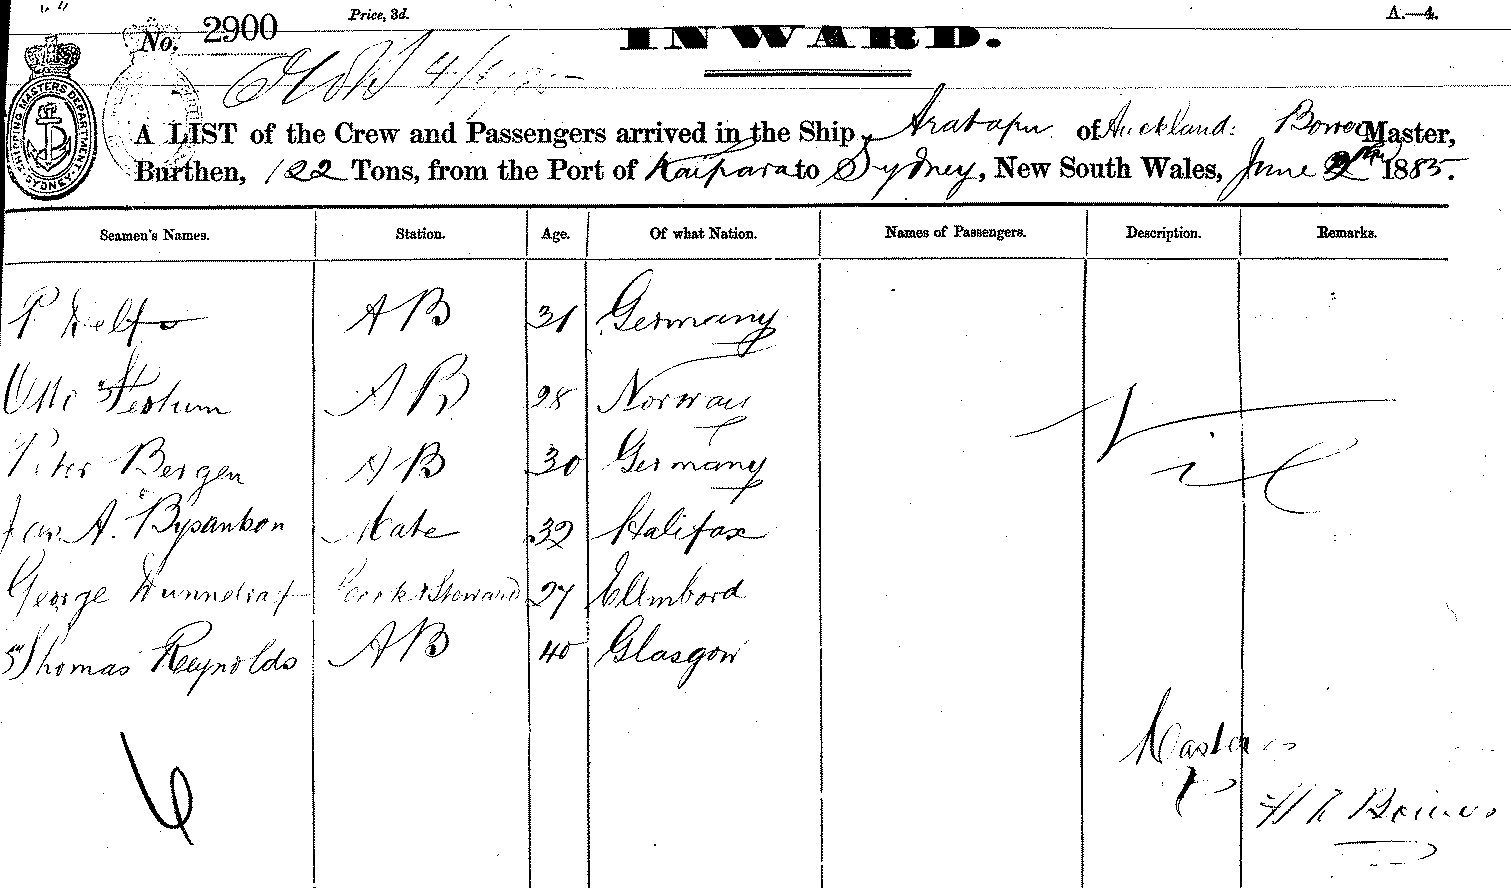 Price, 3d.
A.—4.
No. 2900
INWARD.
SHIPPING MASTERS DEPARTMENT SYDNEY
A LIST of the Crew and Passengers arrived in the Ship, Aratapu of Auckland: Master,
Burthen, 122 Tons, from the Port of Kaipara to Sydney, New South Wales, June 1885.
Seamen's Names. Station. Age. Of what Nation. Names of Passengers. Description. Remarks.
P AB 31 Germany
Otto AB 28 Norway
Nil
Peter Bergen AB 30 Germany
Jas. A. Mate 32 Halifax
George Cook & Steward 27
Thomas Reynolds AB 40 Glasgow
Master
6